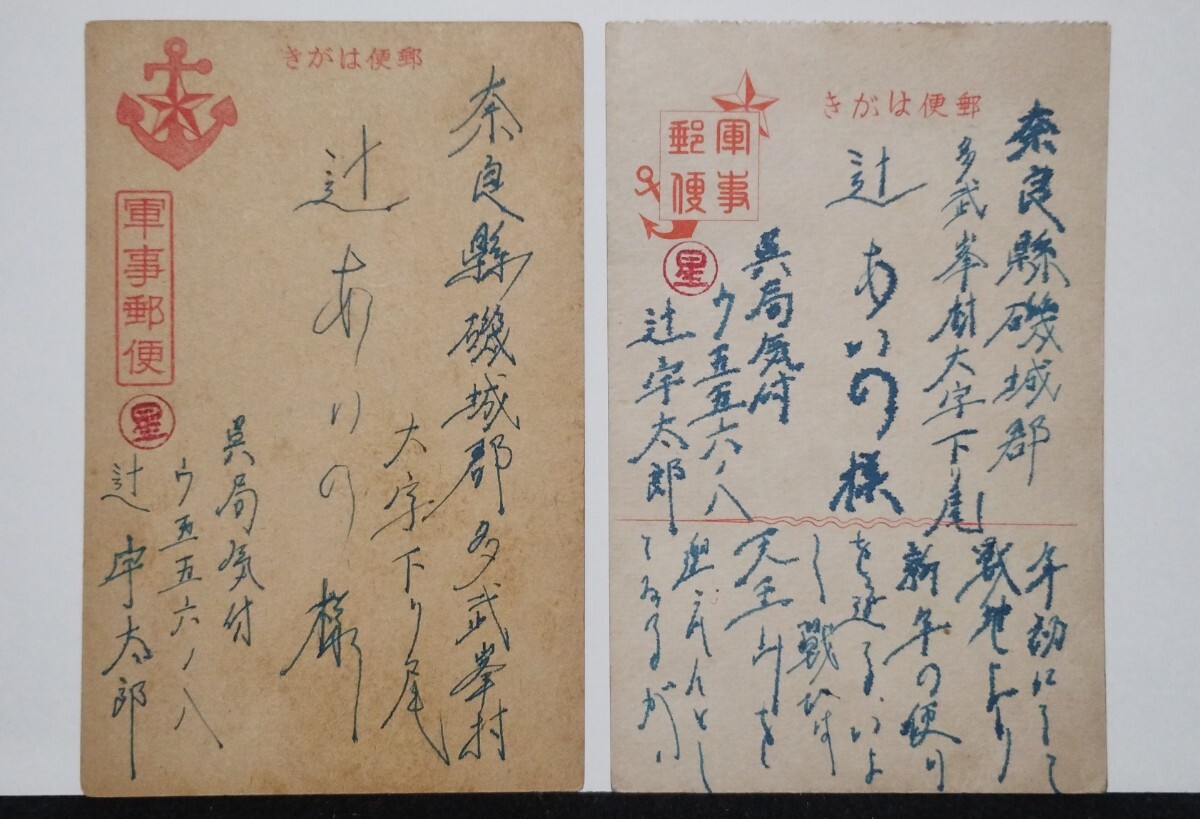 郵便はがき
軍事郵便
星
奈良縣磯城郡多武峯村
大字下り尾
辻あいの様
呉局気付
ウ五五六ノ八
辻宇太郎
郵便はがき
軍事
郵便
星
奈良縣磯城郡
多武峯村大字下り尾
辻あいの様
呉局気付
ウ五五六ノ八
辻宇太郎
年初にして
戦地より
新年の便り
を送る、いよ
し戦ひは
天王山を
てゐるが